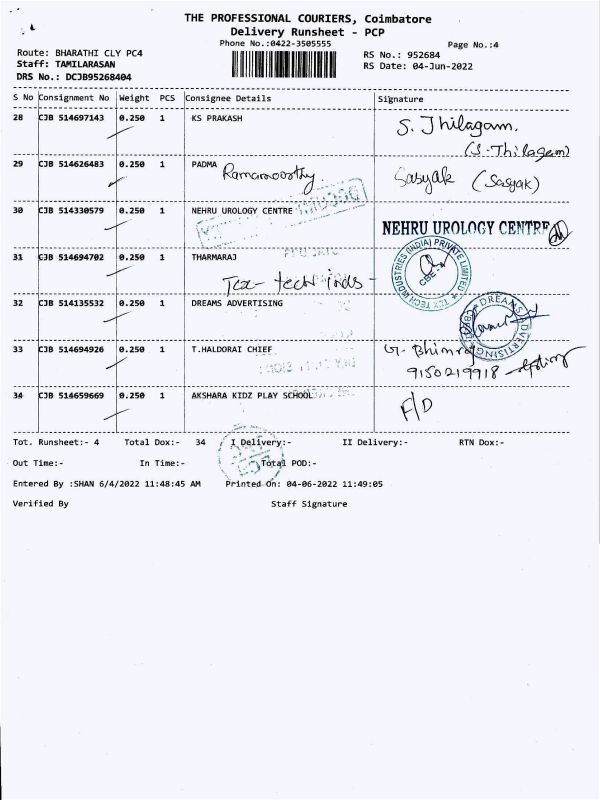 THE PROFESSIONAL COURIERS, Coimbatore
Delivery Runsheet - PCP
Phone No.:0422-3505555
Page No.:4
Route: BHARATHI CLY PC4
RS No.: 952684
Staff: TAMILARASAN
RS Date: 04-Jun-2022
DRS No.: DCJB95268404
S No Consignment No Weight PCS Consignee Details Signature
28 CJB 514697143 0.250 1 KS PRAKASH S. Thilagam.
(S. Thilagam)
29 CJB 514626483 0.250 1 PADMA
Ramamoorthy. Sasyak (Sasyak)
30 CJB 514330579 0.250 1 NEHRU UROLOGY CENTRE
NEHRU UROLOGY CENTRE
31 CJB 514694702 0.250 1 THARMARAJ
Tex-tech inds -
TEX TECH INDUSTRIES (INDIA) PRIVATE LIMITED
CBE-4
32 CJB 514135532 0.250 1 DREAMS ADVERTISING
DREAMS ADVERTISING
33 CJB 514694926 0.250 1 T.HALDORAI CHIEF G. Bhimraj
9150219918
34 CJB 514659669 0.250 1 AKSHARA KIDZ PLAY SCHOOL F/D
Tot. Runsheet:- 4 Total Dox:- 34 I Delivery:- II Delivery:- RTN Dox:-
Out Time:- In Time:- Total POD:-
Entered By :SHAN 6/4/2022 11:48:45 AM Printed On: 04-06-2022 11:49:05
Verified By Staff Signature